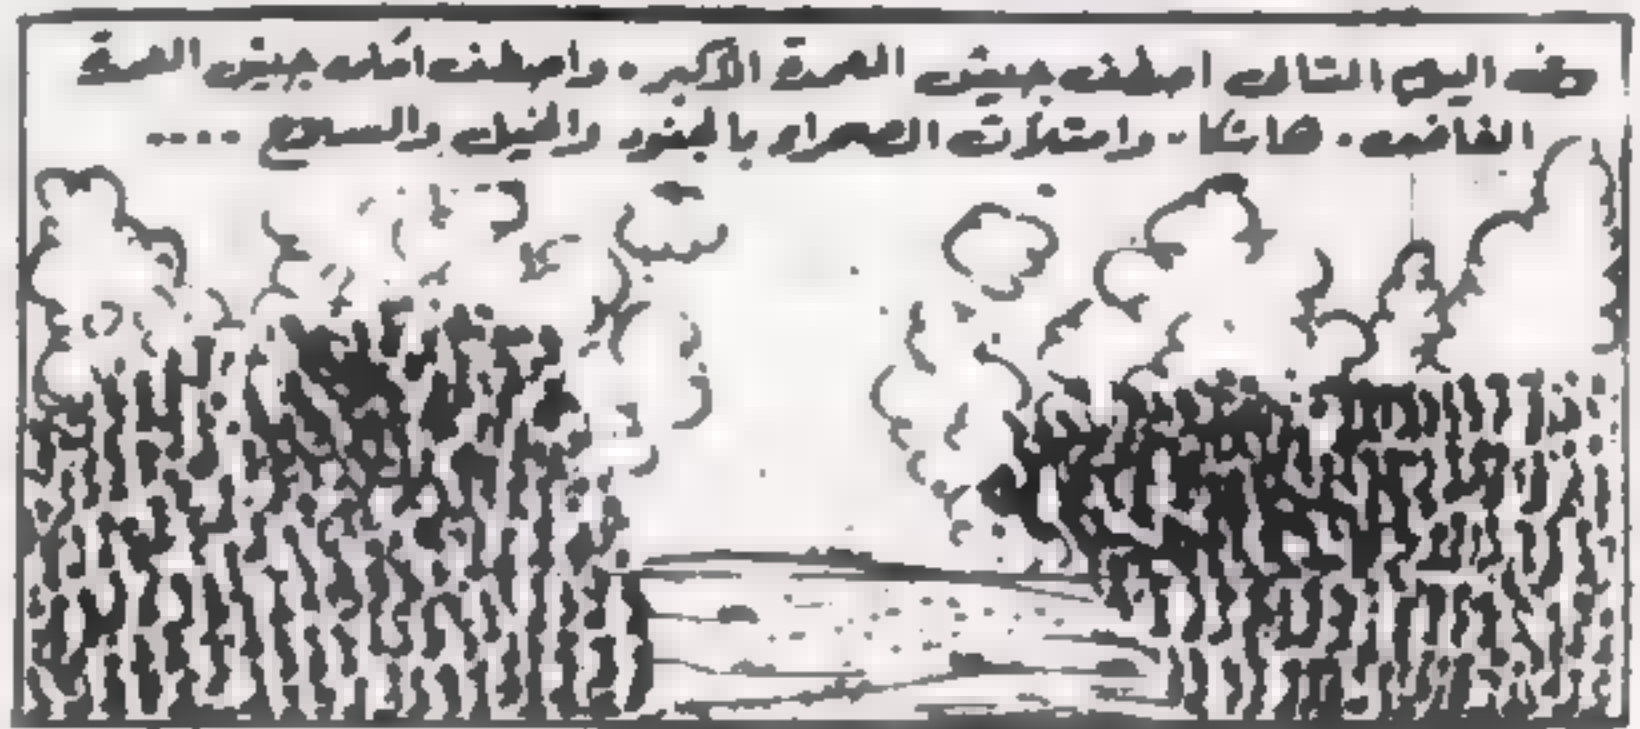 وفى اليوم التالى اصطف جيش العمدة الأكبر. واصطف أمامه جيش العمدة
الغاضب. هاشكا. وامتلأت الصحراء بالجنود والخيل والسلاح ....